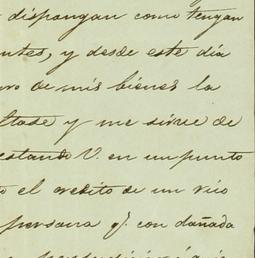 dispongan como tengan
ntes, y desde este día
ro de mis bienes la
ltase y me sirve de
estando V. en un punto
o el credito de un rico
persona q. con dañada